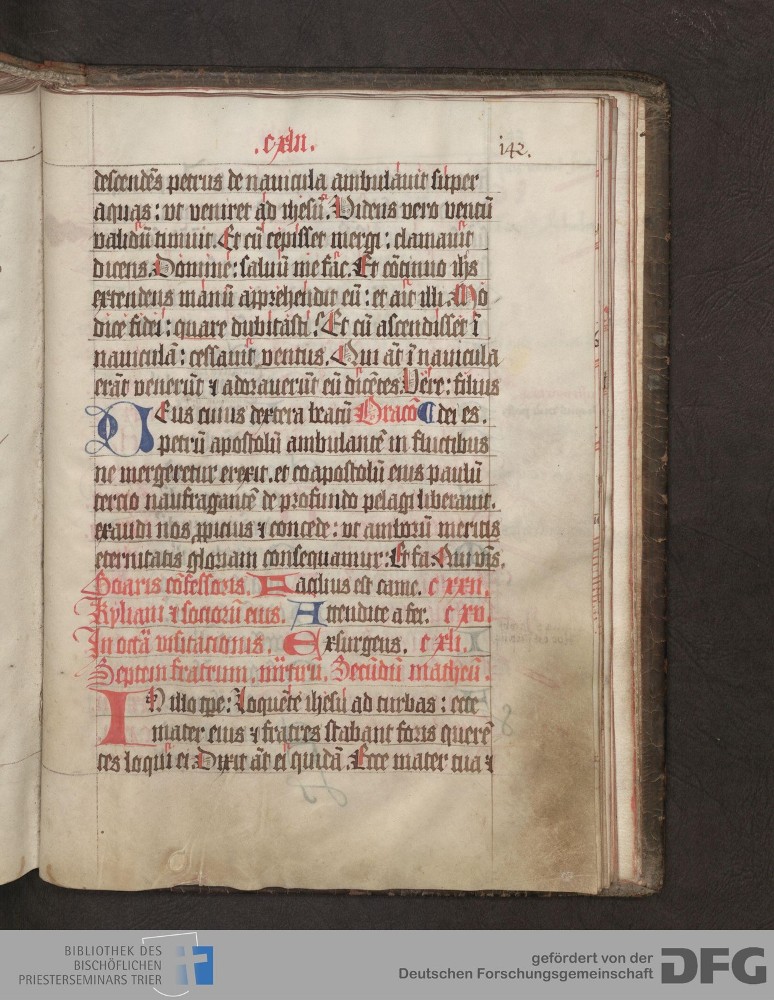 .cxlii.
142.
descendēs petrus de nauicula ambulauit super
aquas: vt veniret ad ihesū. Videns vero ventū
validū timuit. Et cū cepisset mergi: clamauit
dicens. Domine: saluū me fac. Et cōtinuo ihs
extendens manū apprehendit eū: et ait illi. Mo
dice fidei: quare dubitasti? Et cū ascendisset ī
nauiculā: cessauit ventus. Qui āt ī nauicula
erāt venerūt ⁊ adorauerūt eū dicētes. Vere: filius
Deus cuius dextera beatū Oracō dei es.
petrū apostolū ambulantē in fluctibus
ne mergeretur erexit. et coapostolū eius paulū
tercio naufragantē de profundo pelagi liberauit.
exaudi nos ꝓpicius ⁊ concede: vt amborū meritis
eternitatis gloriam consequamur: Et fa. Qui viuis.
Goaris cōfessoris. Facilius est came. cxxii.
Kyliani ⁊ sociorū eius. Attendite a fer. cxv.
In octā visitacionis. Exsurgens. cxli.
Septem fratrum. mrtirū. Secūdū matheū.
In illo tpe: Loquēte ihesu ad turbas: ecce
mater eius ⁊ fratres stabant foris querē
tes loqui ei. Dixit āt ei quidā. Ecce mater tua ⁊
BIBLIOTHEK DES
BISCHÖFLICHEN
PRIESTERSEMINARS TRIER
gefördert von der
Deutschen Forschungsgemeinschaft
DFG